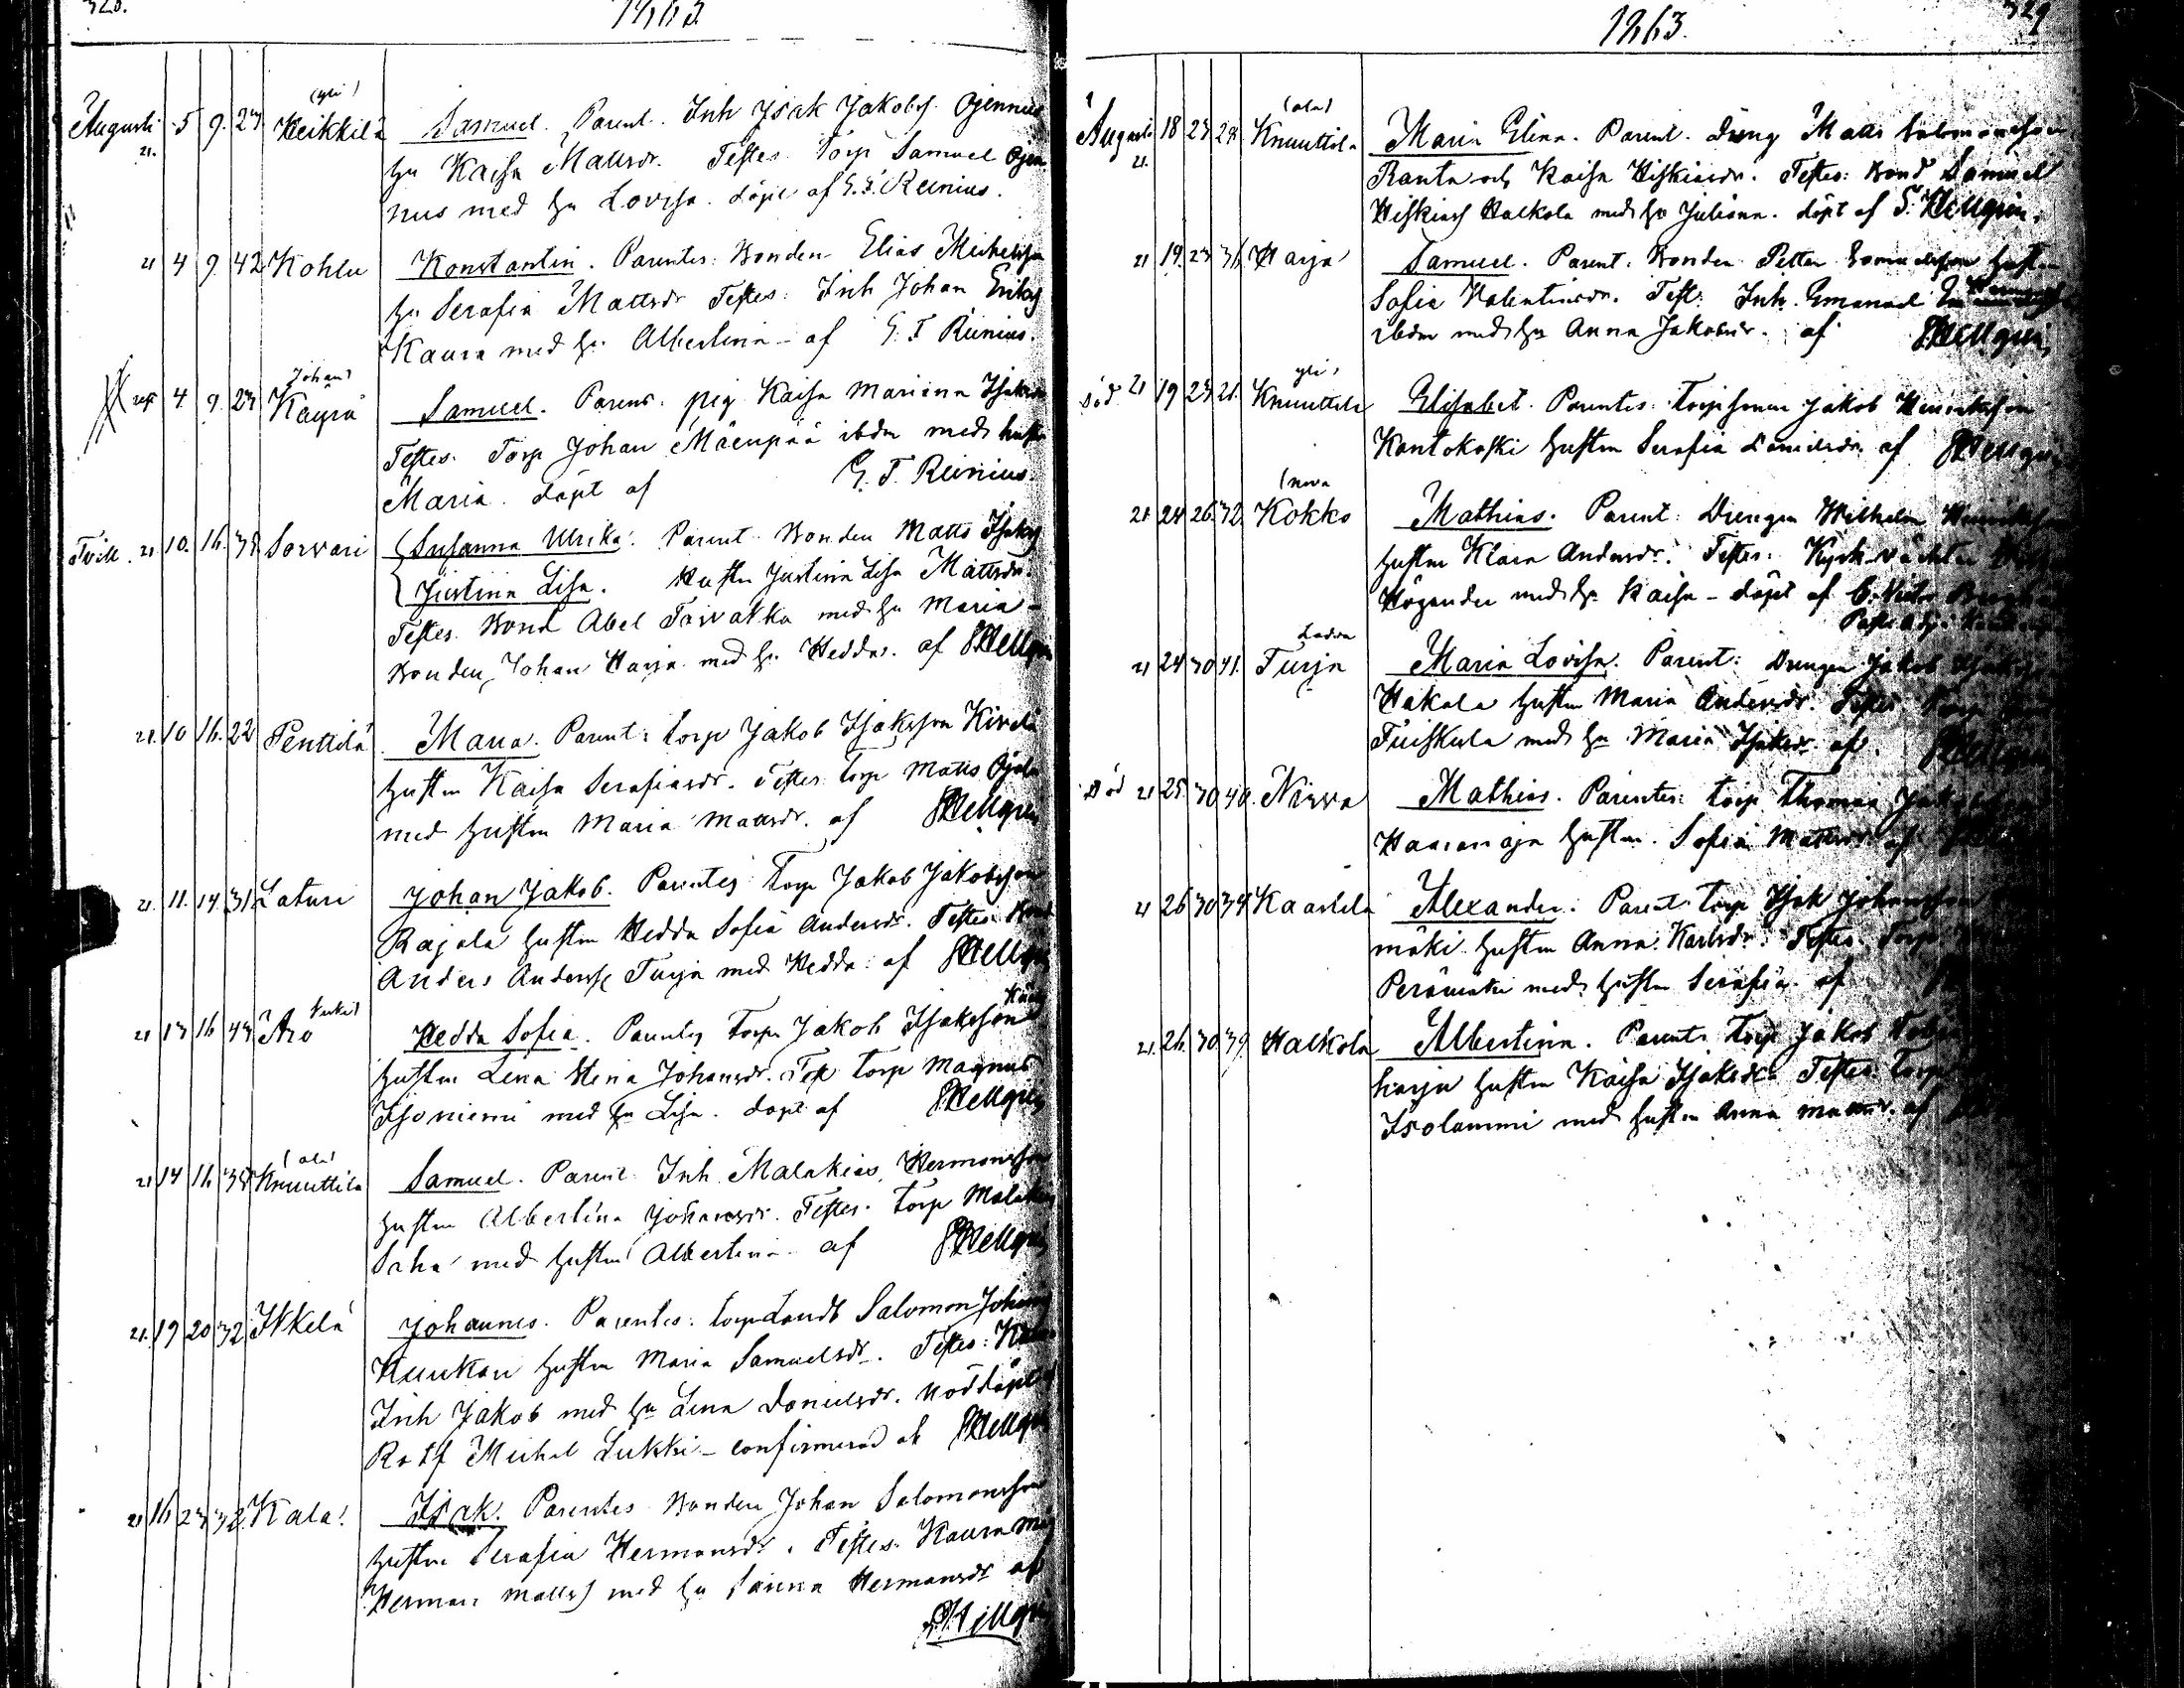 328.
1863.
(yli)
Augusti 5 9. 23 Heikkilä Samuel. Parent. Inh Isak Jakobs. Ojennus
21. hu Kaisa Mattsdr. Testes Torp Samuel Ojen
nus med hu Lovisa. döpt af G. T. Reinius.
21 4 9. 42 Kohlu Konstantin. Parentes: Bonden Elias Michelsson
hu Serafia Mattsdr Testes: Inh Johan Eriks
Kaura med hu Albertina - af G. T Reinius.
Johan)
4 9. 23 Kayra Samuel. Parens. pig Kaisa Mariana Isaksdr
Testes. Torp Johan Mäenpää ibdm med hustr
Maria. döpt af G. T. Reinius.
Tvill. 21 10. 16. 38 Sorvari Susanna Ulrika. Parent Bonden Matts Isaks
Justina Lisa. Hustr Justina Lisa Mattsdr.
Testes. Bond Abel Torvakka med hu Maria -
Bonden Johan Harja med hu Hedda. af Hellgren
21. 10 16. 22 Penttilä. Maria. Parent: torp Jakob Isaksson Kivelä
hustrn Kaisa Serafiasdr. Testes torp Matts Ojala
med hustrn Maria Mattsdr. af Hellgren
21. 11. 14. 31 Laturi Johan Jakob. Parentes Torp Jakob Jakobsson
Rajala hustrn Hedda Sofia Andersdr. Testes Bond
Anders Anderss Turja med Hedda. af Hellgren
21 13 16 43 Aro Hedda Sofia. Parentes Torp Jakob Isaksson
hustrn Lena Stina Johansdr. Test Torp Magnus
Isoniemi med hu Lisa. döpt af Hellgren
(ala)
21 14 16. 38 Knuuttila Samuel. Parent Inh Malakias Hermansson
hustrn Albertina Johansdr. Testes. torp Malakias
Saha med hustrn Albertina. af Hellgren
21. 19 20 32 Ikkelä Johannes. Parentes: torp Landb Salomon Johans
Kuukari hustrn Maria Samuelsdr. Testes:
Inh Jakob med hu Lena Danielsdr. Nöddöpt
Rotf Michel Lukki - confirmerad af Hellgren
21 16 23 32. Kala. Isak. Parentes Bonden Johan Salomonsson
hustrn Serafia Hermansdr. Testes. Kaura
Herman Matts) med hu Sanna Hermansdr af
Hellgren
329
1863.
(ala)
Augusti 18 23 28. Knuuttila Maria Elina. Parent. dreng Matts Salomonsson
21. Ranta och Kaisa Hiskiasdr. Testes: Bond Samuel
Hiskias Halkola med hu Juliana. döpt af Hellgren.
21 19. 23 36 Harja Samuel. Parent. Bonden Petter hustrn
Sofia Valentinsdr. Test: Inh. Emanuel
ibdm med hu Anna Jakobsdr. af Hellgren
yli)
Död 21 19 23 21. Knuuttila Elisabet. Parentes: Torp Jakob Henriksson
Kantokoski hustrn Serafia Danielsdr af Hellgren
(neva
21 24 26. 32. Kokko Mathias. Parent: Drengen Wilhelm Henriksson
hustrn Klara Andersdr. Testes: Kyrkväktar
Högander med hu Kaisa - döpt af
Ladva
21 24 30 41. Turja Maria Lovisa. Parent: Drengen Jakob Isaks
Hakala hustrn Maria Andersdr. Testes Torp
Tuiskula med hu Maria Isaksdr af Hellgren
Död 21 25 30 40. Nirva Mathias. Parentes: torp Thomas Jakobs
Haarasaja hustrn. Sofia Mattsdr af
21 26 30 34 Kaartila Alexander. Parent: torp Isak Johansson
mäki hustrn Anna Karlsdr. Testes. Torp
Perämäki med hustrn Serafia. af
21. 26. 30 39 Halkola Albertina. Parent. Torp Jakob
harju hustrn Kaisa Isaksdr. Testes. Torp
Isolammi med hustrn Anna Mattsdr. af